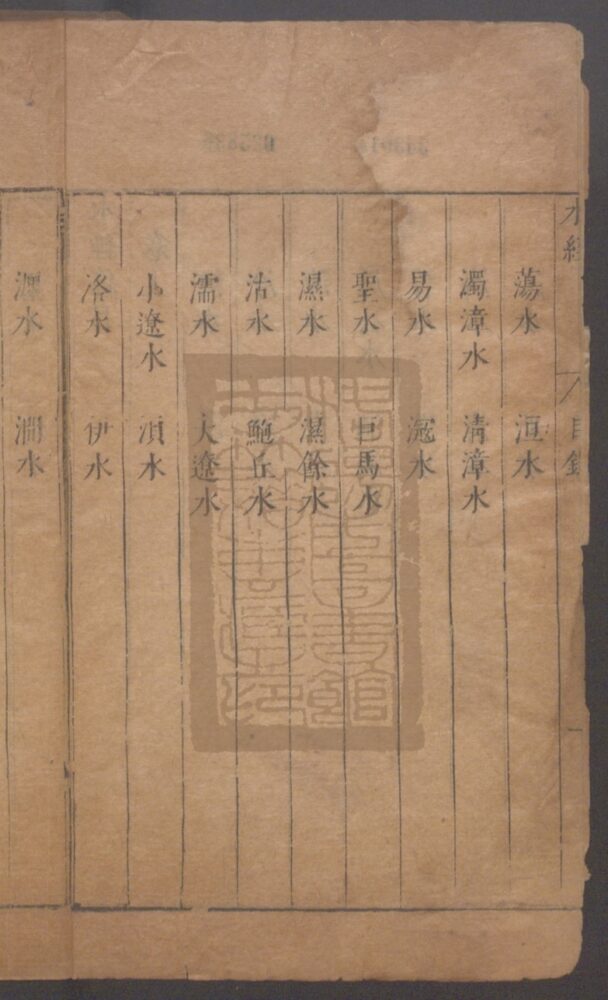 水經 目錄
蕩水 洹水
濁漳水 清漳水
易水 滱水
聖水 巨馬水
㶟水 濕餘水
沽水 鮑丘水
濡水 大遼水
小遼水 浿水
洛水 伊水
瀍水 澗水